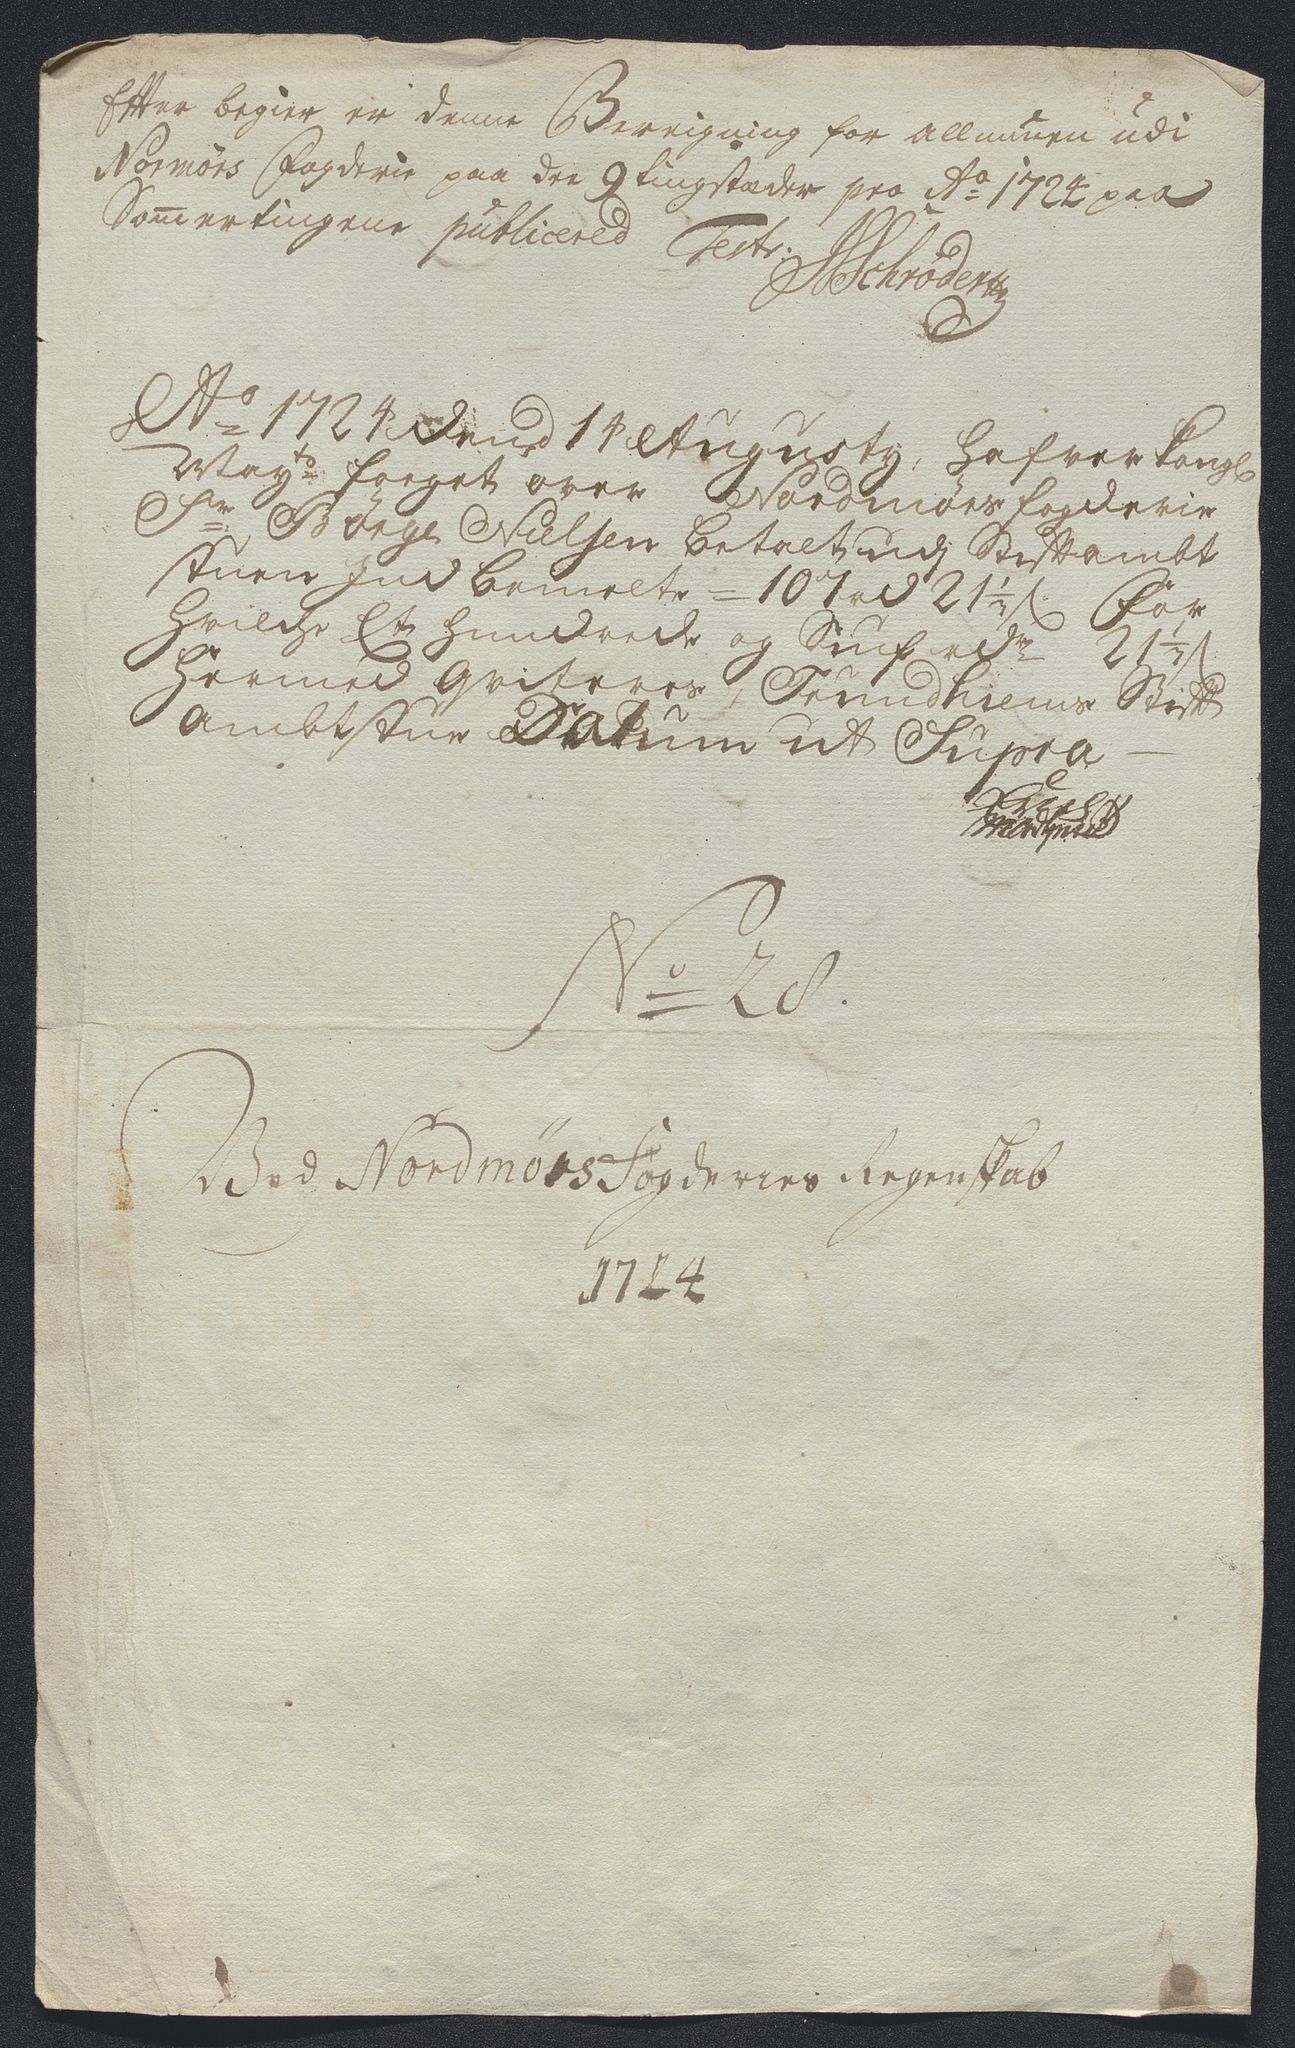 Efter begier er denne Bereigning for allmuen udi
Normörs Fogderie paa dee 9 tingstæder pro Ao 1724 paa
Somertingene publicered Test: Schröder
Ao 1724 dend 14 Augusty, hafver Kongl
Mayts foeget over Nordmörs fogderie
Sr Börge Nielsen betalt udj Stiftambt
stuen Ind bemelte = 107 rd 21½ s. For
hvilche Et hundrede og Siuf rdr 21½ s
hermed Qviteres, Trundhiems Stift
Ambtstue Datum ut Supra
No 28.
Ved Nordmörs Fogderies Regenskab
1724